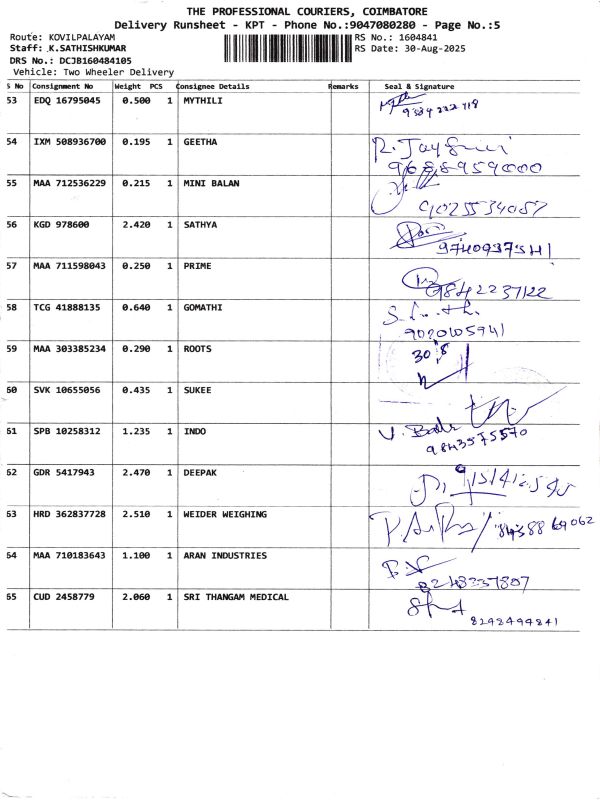 THE PROFESSIONAL COURIERS, COIMBATORE
Delivery Runsheet - KPT - Phone No.:9047080280 - Page No.:5
Route: KOVILPALAYAM RS No.: 1604841
Staff: .K.SATHISHKUMAR RS Date: 30-Aug-2025
DRS No.: DCJB160484105
Vehicle: Two Wheeler Delivery
S No Consignment No Weight PCS Consignee Details Remarks Seal & Signature
53 EDQ 16795045 0.500 1 MYTHILI
54 IXM 508936700 0.195 1 GEETHA
55 MAA 712536229 0.215 1 MINI BALAN
56 KGD 978600 2.420 1 SATHYA
57 MAA 711598043 0.250 1 PRIME
9842237122
58 TCG 41888135 0.640 1 GOMATHI
59 MAA 303385234 0.290 1 ROOTS
30.8
60 SVK 10655056 0.435 1 SUKEE
61 SPB 10258312 1.235 1 INDO
9843575570
62 GDR 5417943 2.470 1 DEEPAK
63 HRD 362837728 2.510 1 WEIDER WEIGHING
64 MAA 710183643 1.100 1 ARAN INDUSTRIES
8248237807
65 CUD 2458779 2.060 1 SRI THANGAM MEDICAL
8248494841